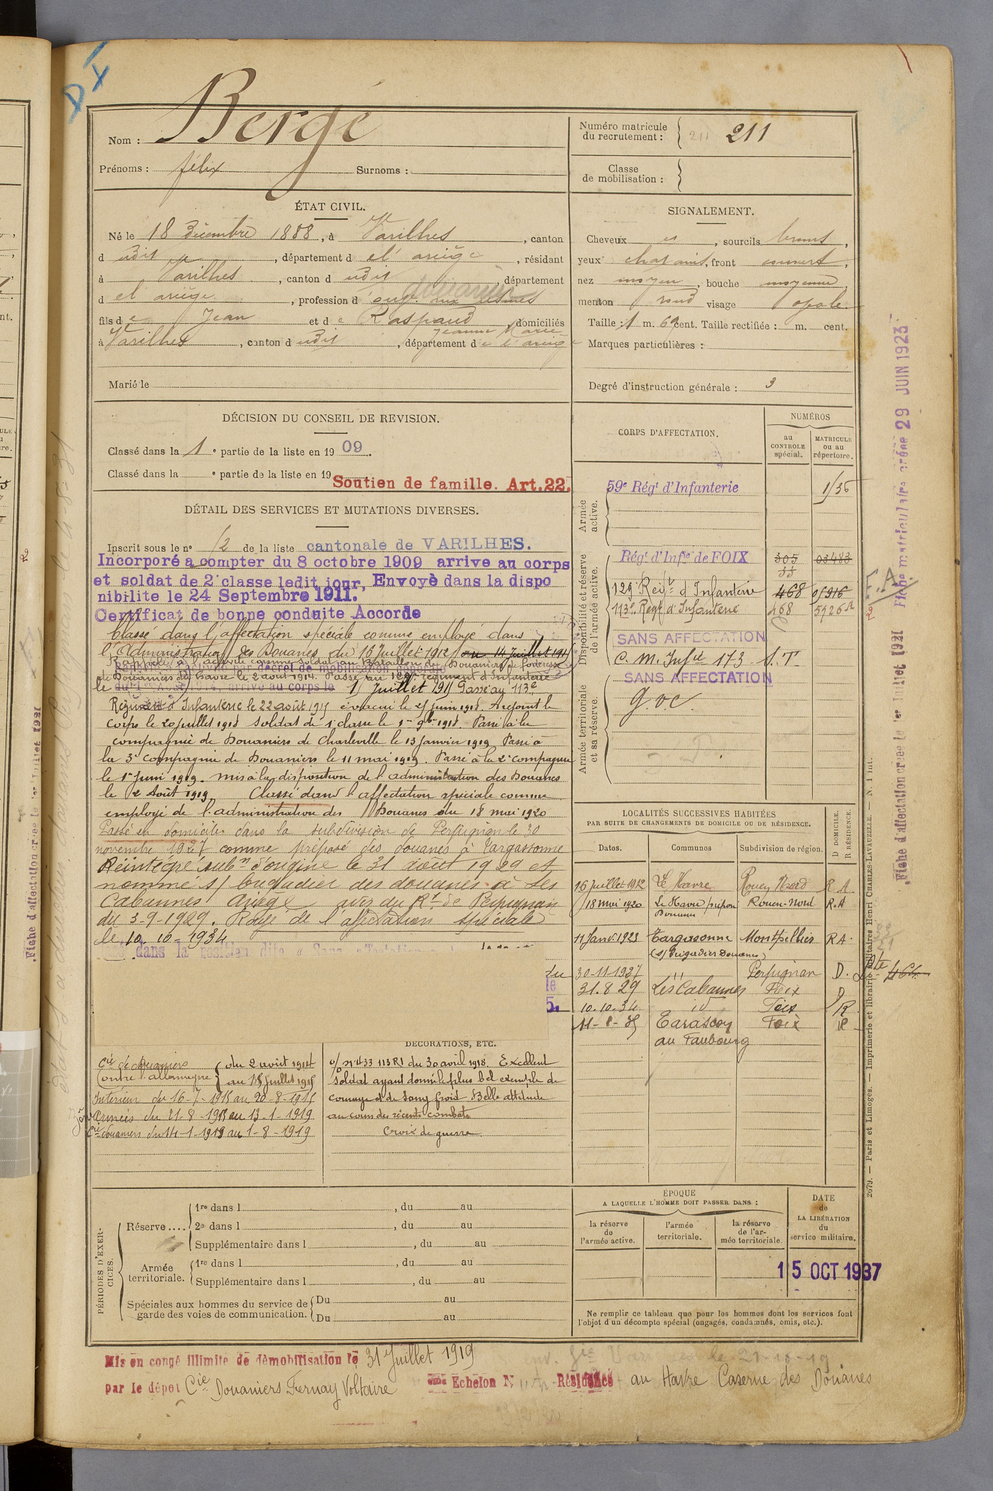 DX
Nom : Bergé
Prénoms : félix Surnoms :
Numéro matricule du recrutement : 211 211
Classe de mobilisation :
ÉTAT CIVIL.
Né le 18 Décembre 1888, à Varilhes, canton
d udit, département d el' ariège, résidant
à Varilhes, canton d udit département
d el ariège, profession d douanier
fils de Jean et de Raspaud Jeanne Marie, domiciliés
à Varilhes, canton d udit, département de l'ariège
Marié le
SIGNALEMENT.
Cheveux , sourcils bruns,
yeux chatains, front couvert,
nez moyen, bouche moyenne
menton rond visage opale
Taille : 1 m. 69 cent. Taille rectifiée : m. cent.
Marques particulières :
Degré d'instruction générale : 3
DÉCISION DU CONSEIL DE REVISION.
Classé dans la 1e partie de la liste en 1909.
Classé dans la e partie de la liste en 19
Soutien de famille. Art.22.
DÉTAIL DES SERVICES ET MUTATIONS DIVERSES.
Inscrit sous le n° 12 de la liste cantonale de VARILHES.
Incorporé a compter du 8 octobre 1909 arrive au corps
et soldat de 2e classe ledit jour, Envoyè dans la dispo
nibilite le 24 Septembre 1911.
Certificat de bonne conduite Accorde
Classé dans l'affectation spéciale comme employé dans
l'Administration des Douanes du 16 Juillet 1912 au 14 Juillet 1915
Rappelé à l'activité comme soldat au Bataillon de Douaniers de forteresse
de Douaniers du Havre le 2 août 1914. Passé au 129e régiment d'Infanterie
le 15 Juillet 1915 Passé au 113e
Régiment d'Infanterie le 22 août 1915 évacué le 25 juin 1918. A rejoint le
corps le 20 juillet 1918 soldat de 1e classe le 1er 9bre 1918. Passé à la
compagnie de Douaniers de Charleville le 13 janvier 1919 Passé à
la 3e Compagnie de Douaniers le 11 mai 1919. Passé à la 2e compagnie
le 1er Juin 1919. mis à la disposition de l'administration des Douanes
le 2 Août 1919. Classé dans l'affectation spéciale comme
employé de l'administration des Douanes du 18 mai 1920
Passé en domicilié dans la subdivision de Perpignan le 30
novembre 1927 comme préposé des douanes à Targassonne
Réintégré subon d'origine le 31 août 1929 et
nommé s/ brigadier des douanes à Les
Cabannes Ariège avis du Rt de Perpignan
du 3-9-1929. Rayé de l'affectation spéciale
le 10-10-1934
CORPS D'AFFECTATION.
NUMÉROS
au CONTROLE spécial.
MATRICULE ou au répertoire.
Armée active.
59e Régt d'Infanterie 1/35
Disponibilité et réserve de l'armée active.
Régt d'Infie de FOIX 305 03483
129 Régt d'Infanterie 468 05916
113e Régt d'Infanterie 468
SANS AFFECTATION
C. M. Infie 173 S.T
SANS AFFECTATION
Armée territoriale et sa réserve.
g.v.c.
LOCALITÉS SUCCESSIVES HABITÉES
PAR SUITE DE CHANGEMENTS DE DOMICILE OU DE RÉSIDENCE.
Dates. Communes Subdivision de région. D DOMICILE. R RÉSIDENCE.
16 Juillet 1912 Le Havre Rouen Nord R.A
18 mai 1920 Le Havre préposé Douanes Rouen-Nord R.A
11 Janv. 1923 Targasonne (s/ brigadier Douanes) Montpellier R A.
30-11-1927 " Perpignan D.
31.8.29 Les Cabannes Foix D
10.10.34 id Foix R
11-8-35 Tarascon au Faubourg Foix R
DÉCORATIONS, ETC.
Cie de douaniers du 2 août 1914
Contre l'allemagne au 15 juillet 1915
Intérieur du 16-7-1915 au 20-8-1915
Armées du 21-8-1915 au 13-1-1919
Cie douaniers du 14-1-1919 au 1-8-1919
o/ n° 433 113 RI du 30 avril 1918. Excellent
Soldat ayant donné le plus bel exemple de
courage et de sang froid. Belle attitude
au cours des récents combats
Croix de guerre
PÉRIODES D'EXERCICES.
Réserve.... 1re dans l , du au
2e dans l , du au
Supplémentaire dans l , du au
Armée territoriale. 1re dans l , du au
Supplémentaire dans l , du au
Spéciales aux hommes du service de garde des voies de communication. Du au
Du au
ÉPOQUE
A LAQUELLE L'HOMME DOIT PASSER DANS :
la réserve de l'armée active.
l'armée territoriale.
la réserve de l'armée territoriale
DATE de LA LIBÉRATION du service militaire.
15 OCT 1937
Ne remplir ce tableau que pour les hommes dont les services font
l'objet d'un décompte spécial (engagés, condamnés, omis, etc.).
Mis en congé illimité de démobilisation le 31 Juillet 1919
par le dépôt Cie Douaniers Fernay Voltaire Echelon N° Résidence au Havre Caserne des Douanes
Fiche matriculaire créée 29 JUIN 1923
F.A.
Fiche d'affectation créée le 1er Juillet 1921
2079. — Paris et Limoges. — Imprimerie et librairie militaires Henri CHARLES-LAVAUZELLE. — N. 1 int.
Fiche d'affectation créée le 1er Juillet 1921